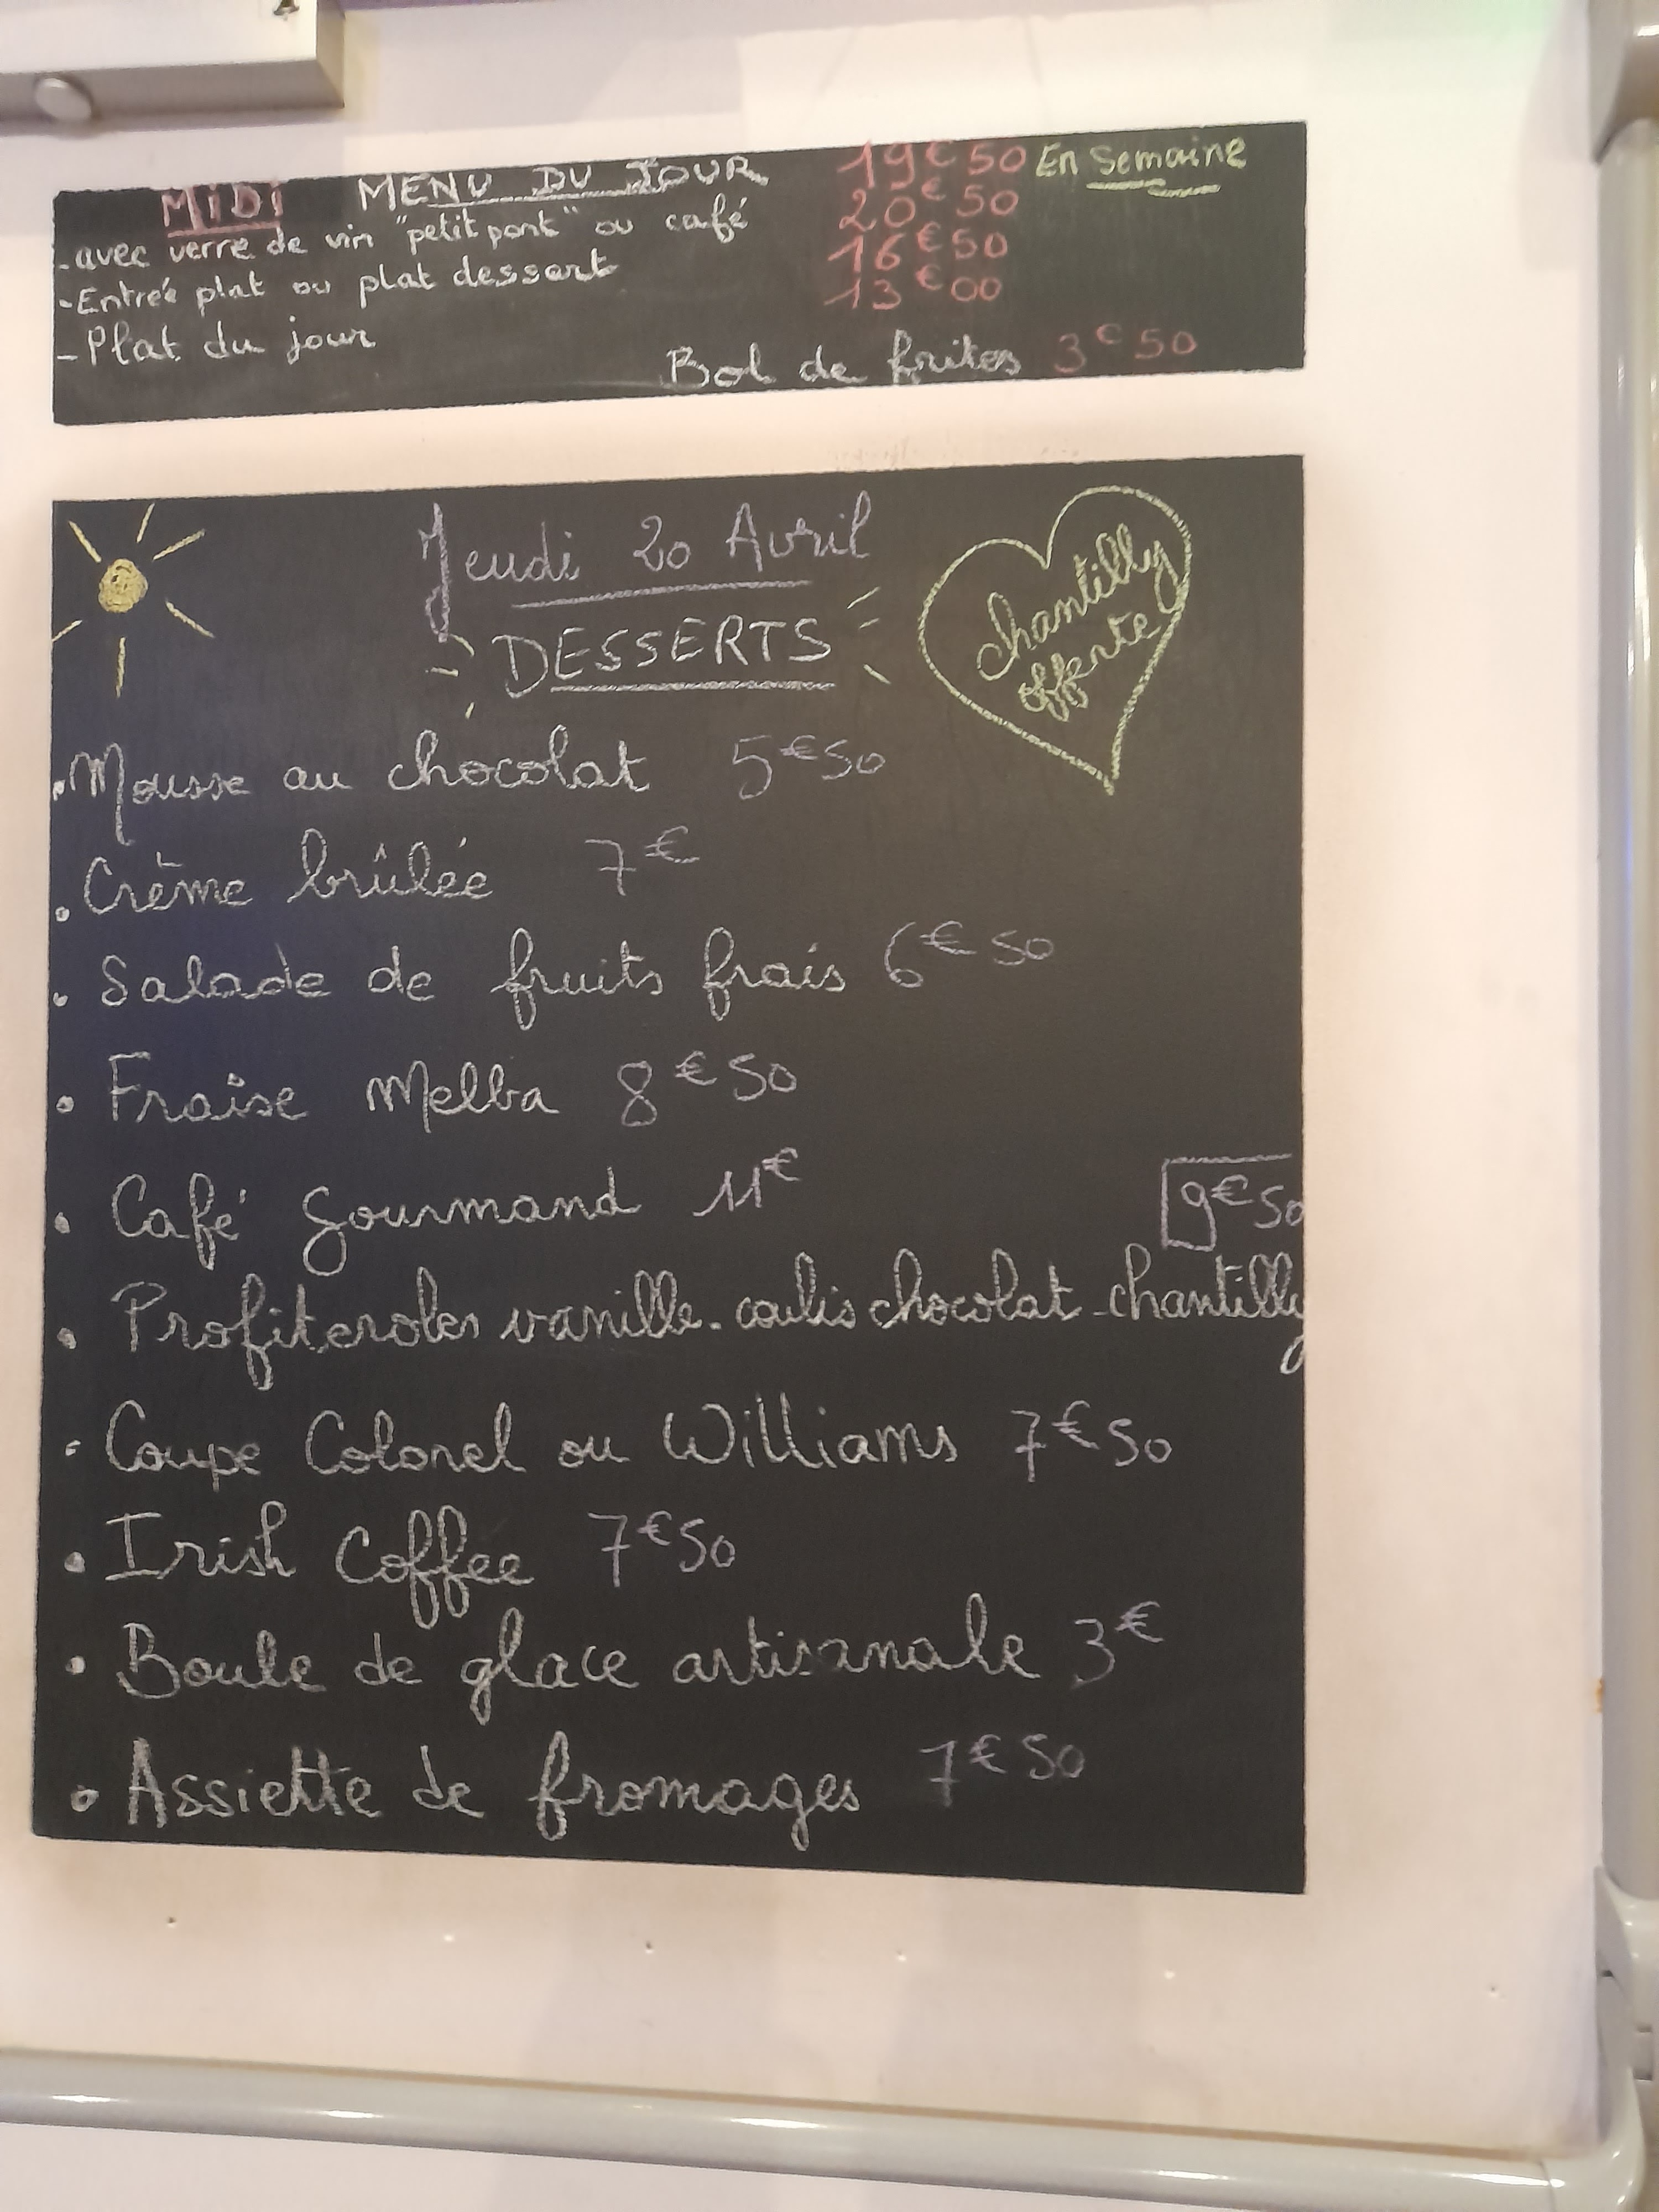 MIDI MENU DU JOUR 19€50 En semaine
- avec verre de vin "petit pont" ou café 20€50
- Entrée plat ou plat dessert 16€50
- Plat du jour 13€00
Bol de frites 3€50
Jeudi 20 Avril
DESSERTS
chantilly
offerte
• Mousse au chocolat 5€50
• Crème brûlée 7€
• Salade de fruits frais 6€50
• Fraise Melba 8€50
• Café Gourmand 11€
9€50
• Profiteroles vanille - coulis chocolat - chantilly
• Coupe Colonel ou Williams 7€50
• Irish Coffee 7€50
• Boule de glace artisanale 3€
• Assiette de fromages 7€50